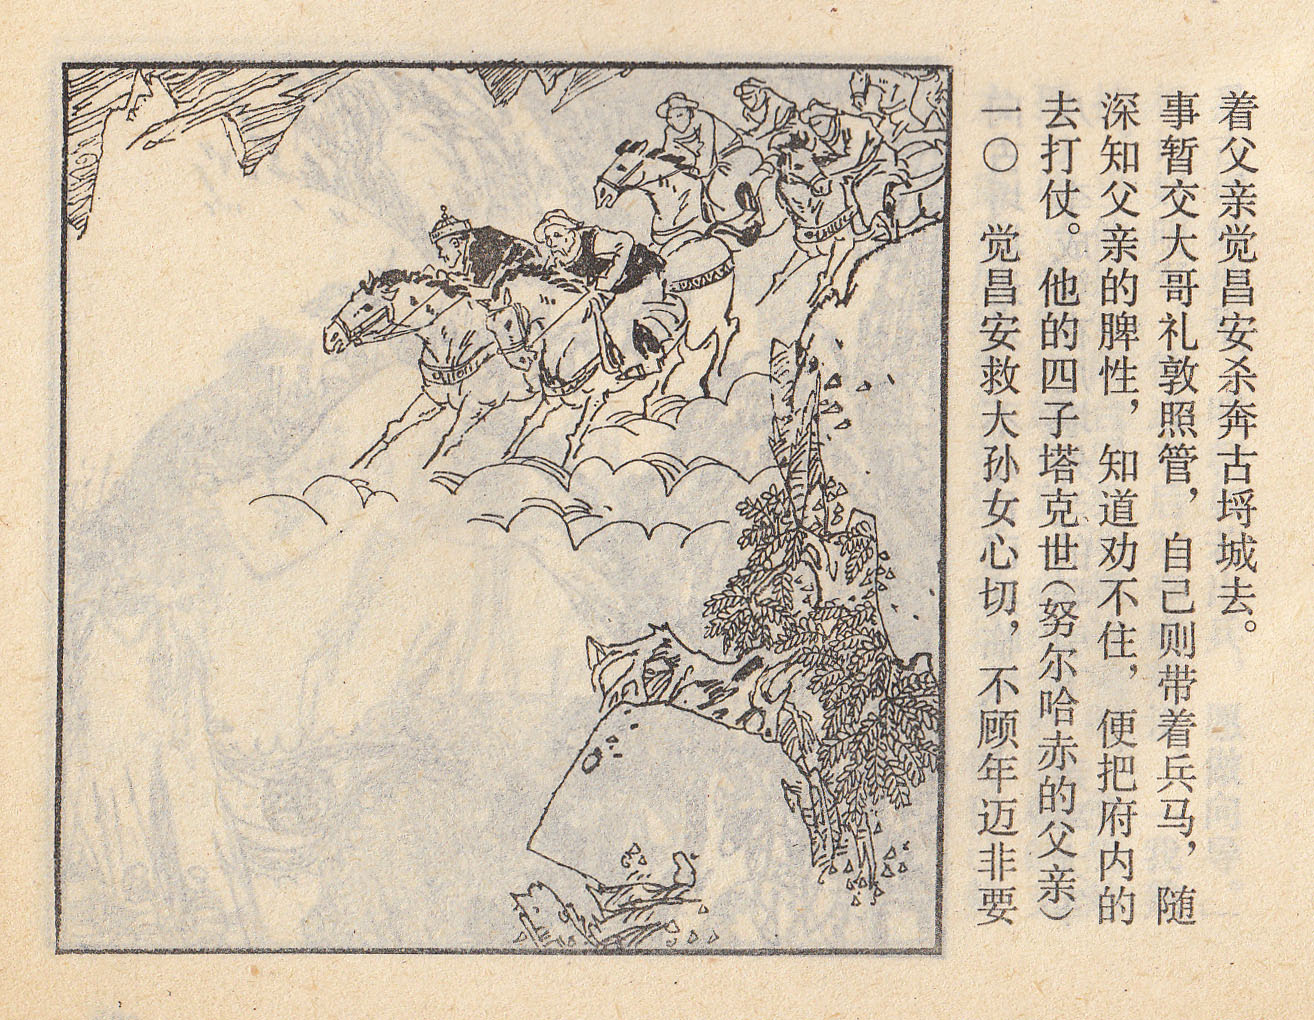 一〇 觉昌安救大孙女心切，不顾年迈非要
去打仗。他的四子塔克世（努尔哈赤的父亲）
深知父亲的脾性，知道劝不住，便把府内的
事暂交大哥礼敦照管，自己则带着兵马，随
着父亲觉昌安杀奔古埒城去。